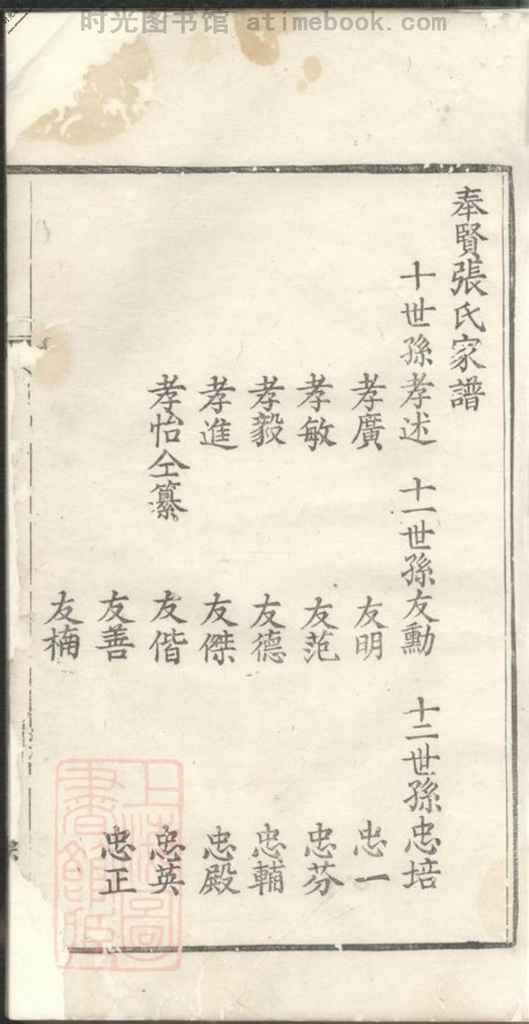 时光图书馆 atimebook.com
奉賢張氏家譜
十世孫孝述 十一世孫友勳 十二世孫忠培
孝廣 友明 忠一
孝敏 友范 忠芬
孝毅 友德 忠輔
孝進 友傑 忠殿
孝怡仝纂 友偕 忠英
友善 忠正
友楠
上海圖
書館藏